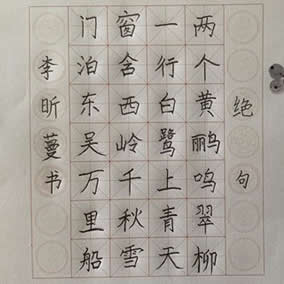 绝句
两个黄鹂鸣翠柳
一行白鹭上青天
窗舍西岭千秋雪
门泊东吴万里船
李昕蔓书